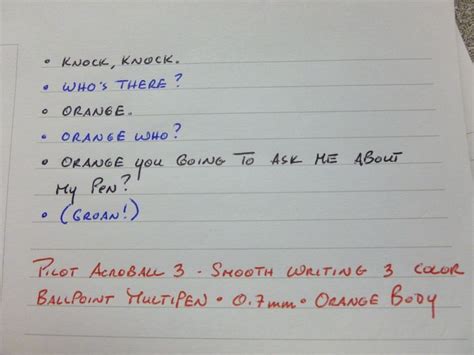 • KNOCK, KNOCK.
• WHO'S THERE?
• ORANGE.
• ORANGE WHO?
• ORANGE YOU GOING TO ASK ME ABOUT
MY PEN?
• (GROAN!)
PILOT ACROBALL 3 - SMOOTH WRITING 3 COLOR
BALLPOINT MULTIPEN • 0.7mm • ORANGE BODY